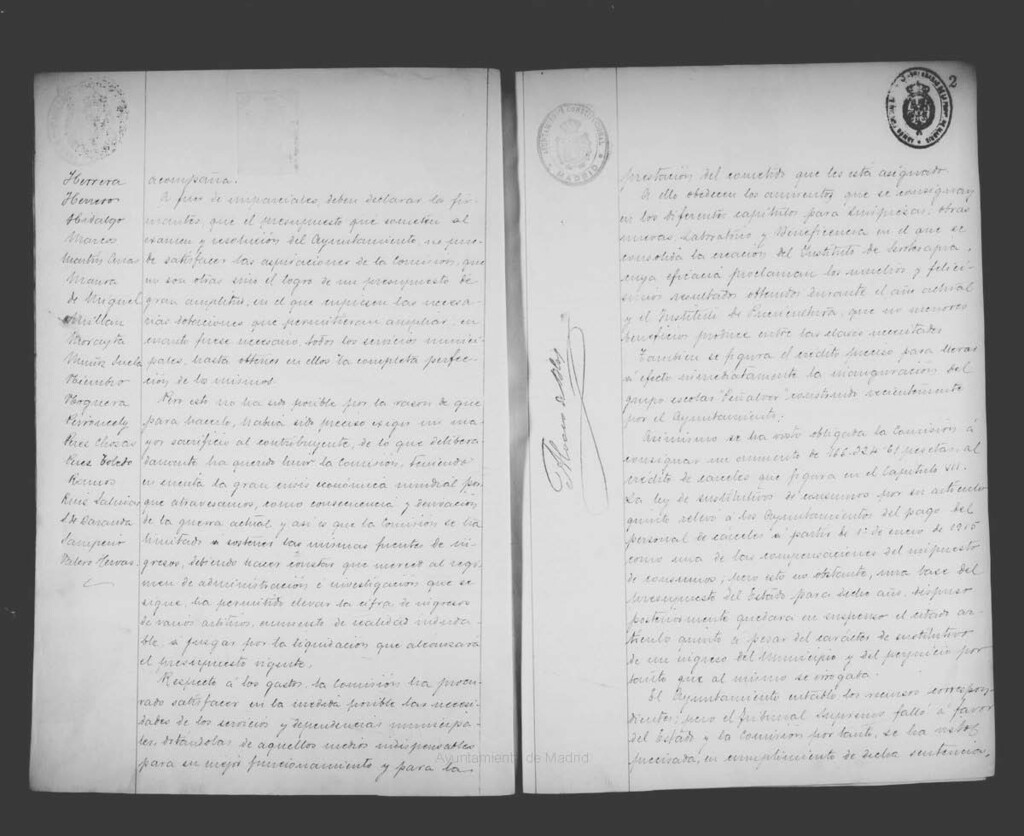 Herrera
Herrero
Hidalgo
Marcos
Martín Arias
Maura
de Miguel
Millan
Morayta
Muñoz
Noguera
Pirroncely
Ruiz Chozas
Ruiz Toledo
Ramos
Ruiz Salinas
S. de Baranda
Sampeir
Valero Hervas
acompaña.
A fuer de imparciales, deben declarar los fir-
mantes, que el presupuesto que someten al
examen y resolución del Ayuntamiento, no pue-
de satisfacer las aspiraciones de la Comisión, que
no son otras sino el logro de un presupuesto de
gran amplitud, en el que cupiesen las necesa-
rias dotaciones que permitieran ampliar, en
cuanto fuese necesario, todos los servicios munici-
pales, hasta obtener en ellos la completa perfec-
ción de los mismos.
Pero esto no ha sido posible por la razon de que
para hacerlo, habria sido preciso exigir un ma-
yor sacrificio al contribuyente, de lo que delibera-
damente ha querido huir la Comisión, teniendo
en cuenta la gran crisis económica mundial por
que atravesamos, como consecuencia y derivación
de la guerra actual y asi es que la Comisión se ha
limitado a sostener las mismas fuentes de in-
gresos, debiendo hacer constar que merced al regi-
men de administración é investigación que se
sigue, ha permitido elevar la cifra de ingresos
de varios arbitrios, aumento de realidad induda-
ble, a juzgar por la liquidación que alcanzará
el presupuesto vigente.
Respecto á los gastos, la Comisión ha procu-
rado satisfacer en la medida posible las necesi-
dades de los servicios y dependencias municipa-
les, dotándolas de aquellos medios indispensables
para su mejor funcionamiento y para la
2
prestación del cometido que les está asignado.
A ello obedecen los aumentos que se consignan
en los diferentes capítulos para Limpiezas, obras
nuevas, Laboratorio y Beneficencia en el que se
consolida la creación del Instituto de
cuya eficacia proclaman los muchos y felici-
simos resultados obtenidos durante el año actual
y el Instituto de Puericultura, que no menores
beneficios produce entre las clases necesitadas
Tambien se figura el crédito preciso para llevar
á efecto inmediatamente la inauguración del
grupo escolar "Peñalver" construido recientemente
por el Ayuntamiento.
Asimismo se ha visto obligada la Comisión á
consignar un aumento de 766.324'61 pesetas, al
crédito de carceles que figura en el Capítulo VII.
La ley de sustitutivos de consumos por su articulo
quinto relevó a los Ayuntamientos del pago del
personal de carceles a partir de 1º de enero de 1915
como una de las compensaciones del impuesto
de consumos; pero esto no obstante, una base del
presupuesto del Estado para dicho año, dispuso
posteriormente quedara en suspenso el citado ar-
tículo quinto a pesar del carácter de sustitutivo
de un ingreso del Municipio y del perjuicio por
tanto que al mismo se irrogaba.
El Ayuntamiento entabló los recursos correspon-
dientes; pero el Tribunal Supremo falló á favor
del Estado y la Comisión por tanto, se ha visto
precisada, en cumplimiento de dicha sentencia,
Ayuntamiento de Madrid